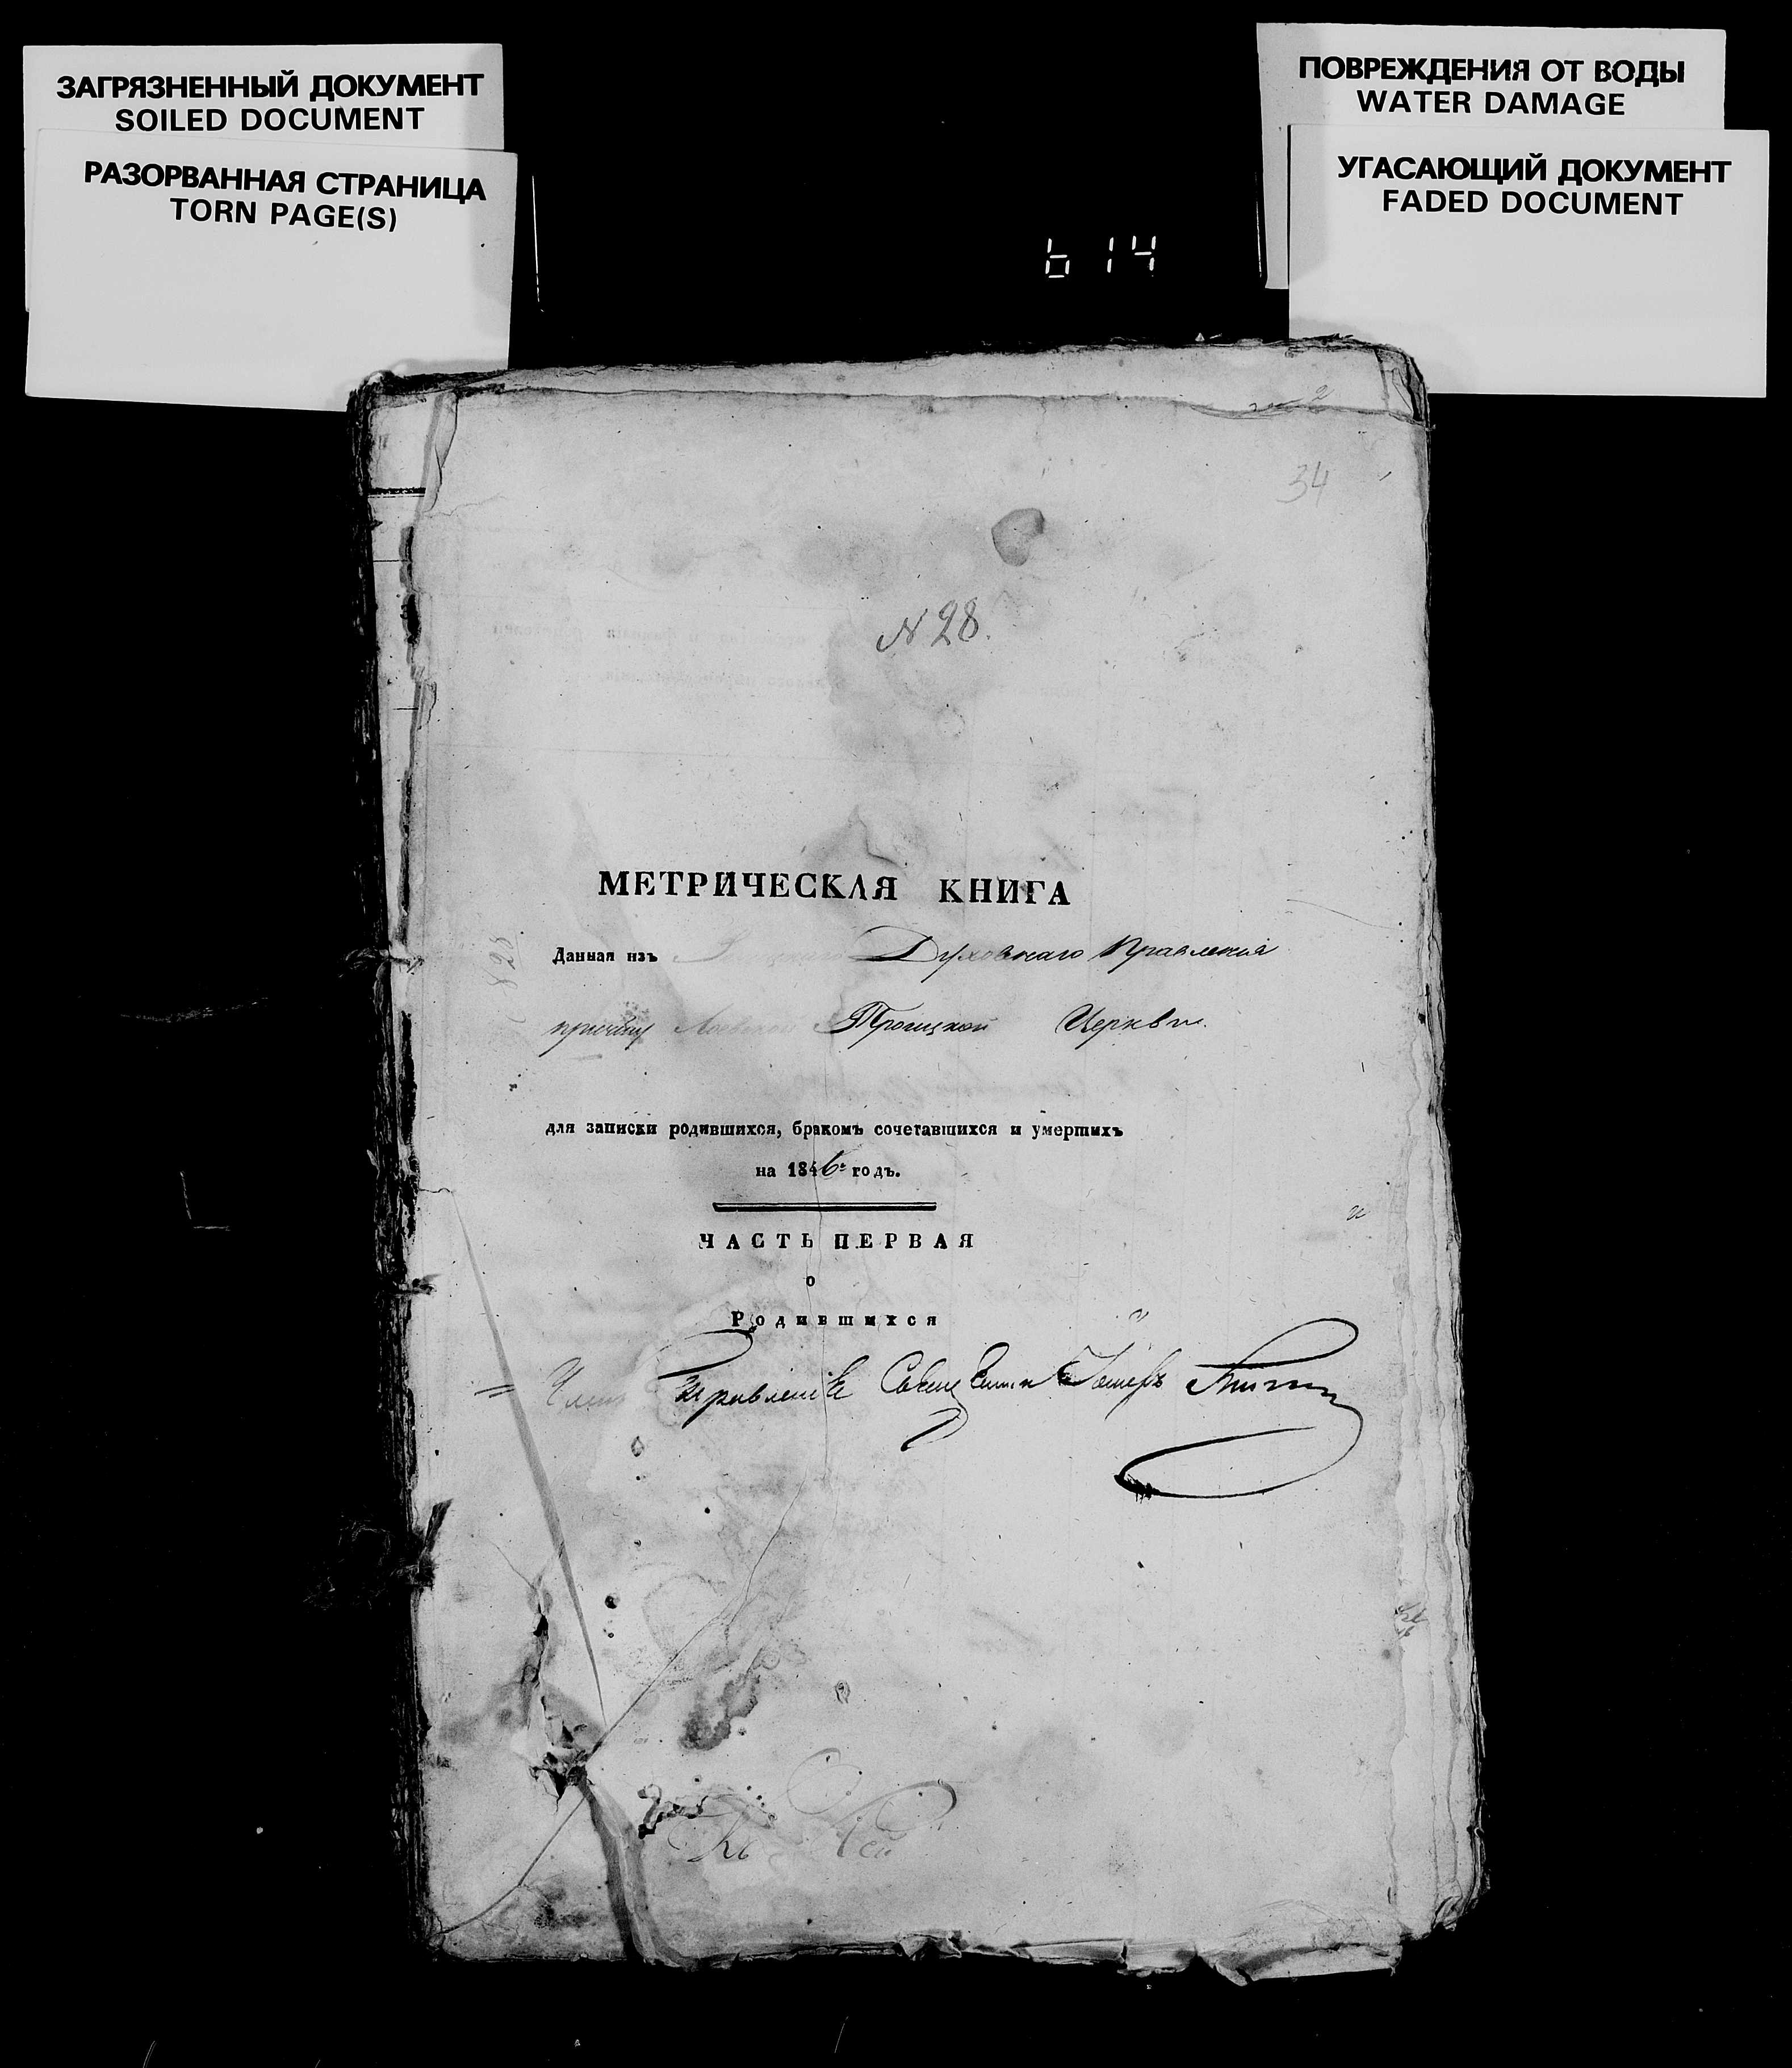 ЗАГРЯЗНЕННЫЙ ДОКУМЕНТ
SOILED DOCUMENT
РАЗОРВАННАЯ СТРАНИЦА
TORN PAGE(S)
ПОВРЕЖДЕНИЯ ОТ ВОДЫ
WATER DAMAGE
УГАСАЮЩИЙ ДОКУМЕНТ
FADED DOCUMENT
614
34
N 28.
МЕТРИЧЕСКАЯ КНИГА
Данная изъ Духовнаго Правленія
причту Троицкой Церкви.
для записки родившихся, бракомъ сочетавшихся и умершихъ
на 1846 годъ.
ЧАСТЬ ПЕРВАЯ
о
Родившихся
Правленія